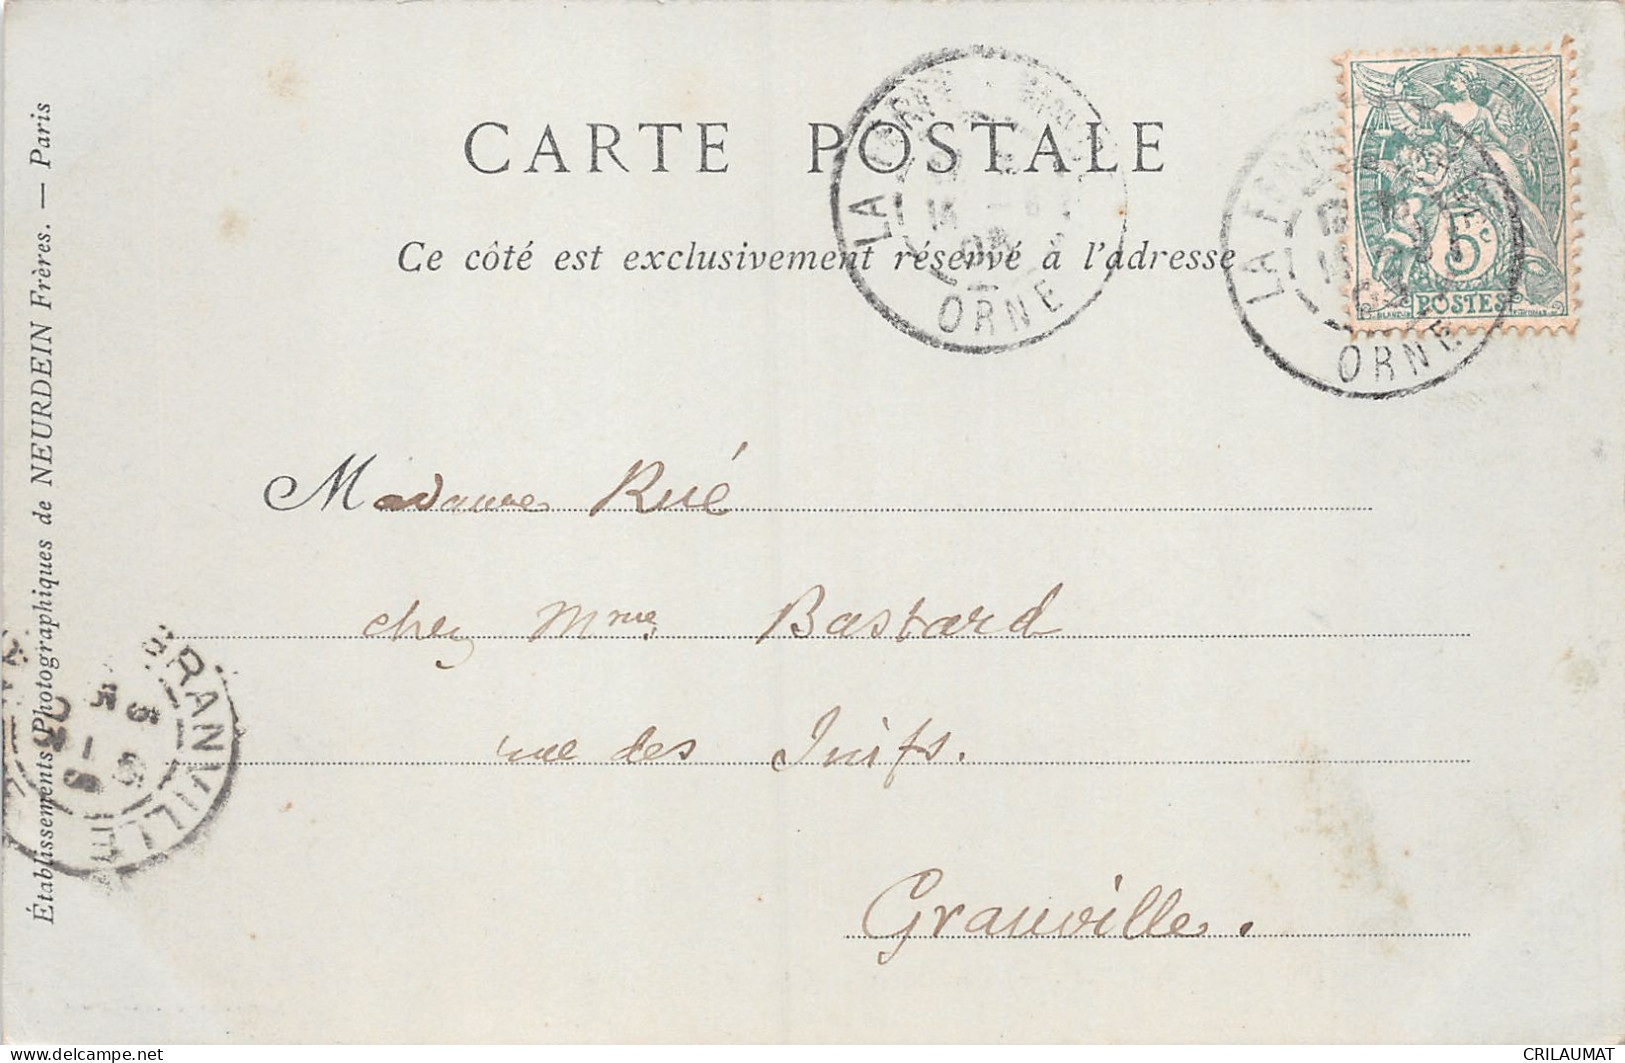 CARTE POSTALE
Ce côté est exclusivement réservé à l'adresse
LA
ORNE
LA
ORNE
5c
POSTES
Madame Rué
chez Mme Bastard
rue des Juifs.
Granville.
GRANVILLE
Établissements Photographiques de NEURDEIN Frères. — Paris
delcampe.net
CRILAUMAT